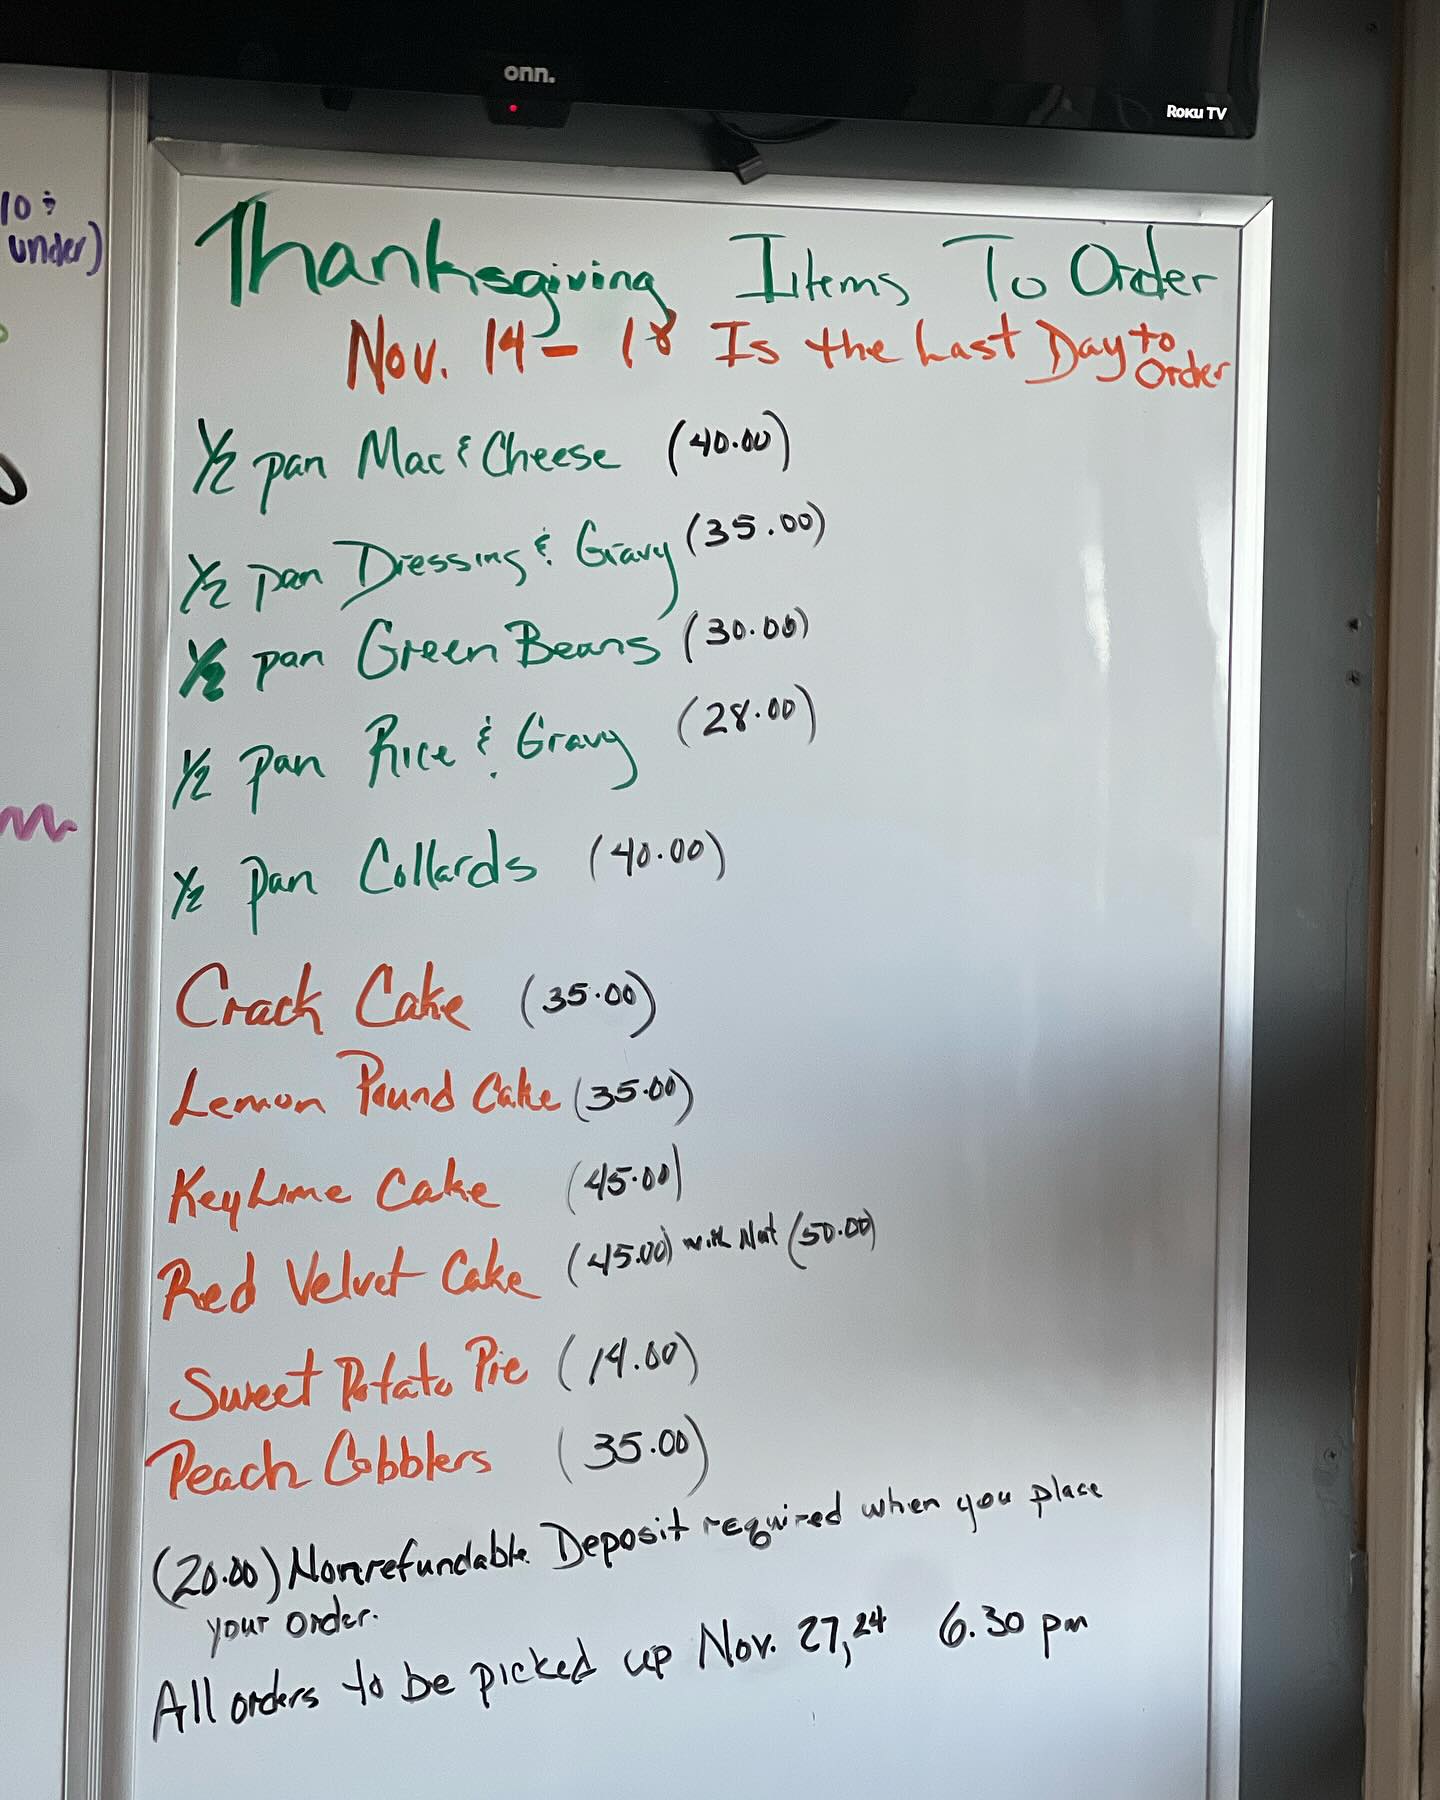 onn.
Roku TV
10 &
under)
Thanksgiving Items To Order
Nov. 14 - 18 Is the Last Day to Order
1/2 pan Mac & Cheese (40.00)
1/2 pan Dressing & Gravy (35.00)
1/2 pan Green Beans (30.00)
1/2 pan Rice & Gravy (28.00)
1/2 pan Collards (40.00)
Crack Cake (35.00)
Lemon Pound Cake (35.00)
Key Lime Cake (45.00)
Red Velvet Cake (45.00) with Nut (50.00)
Sweet Potato Pie (14.00)
Peach Cobblers (35.00)
(20.00) Nonrefundable Deposit required when you place
your order.
All orders to be picked up Nov. 27, 24 6.30 pm